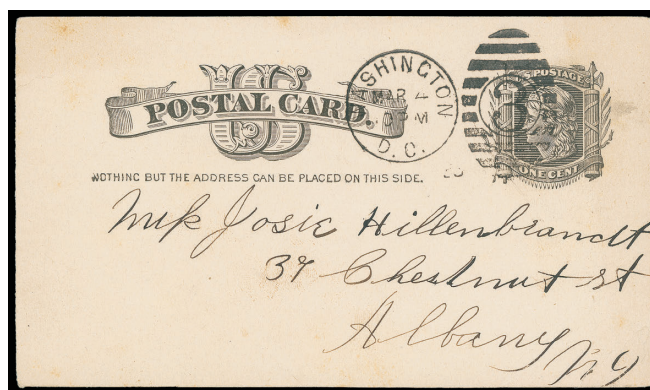 US
POSTAL CARD.
WASHINGTON
MAR 4
PM
D. C.
3
U.S. POSTAGE
ONE CENT
NOTHING BUT THE ADDRESS CAN BE PLACED ON THIS SIDE.
Josie Hillenbrandt
37 Chestnut st
Albany NY